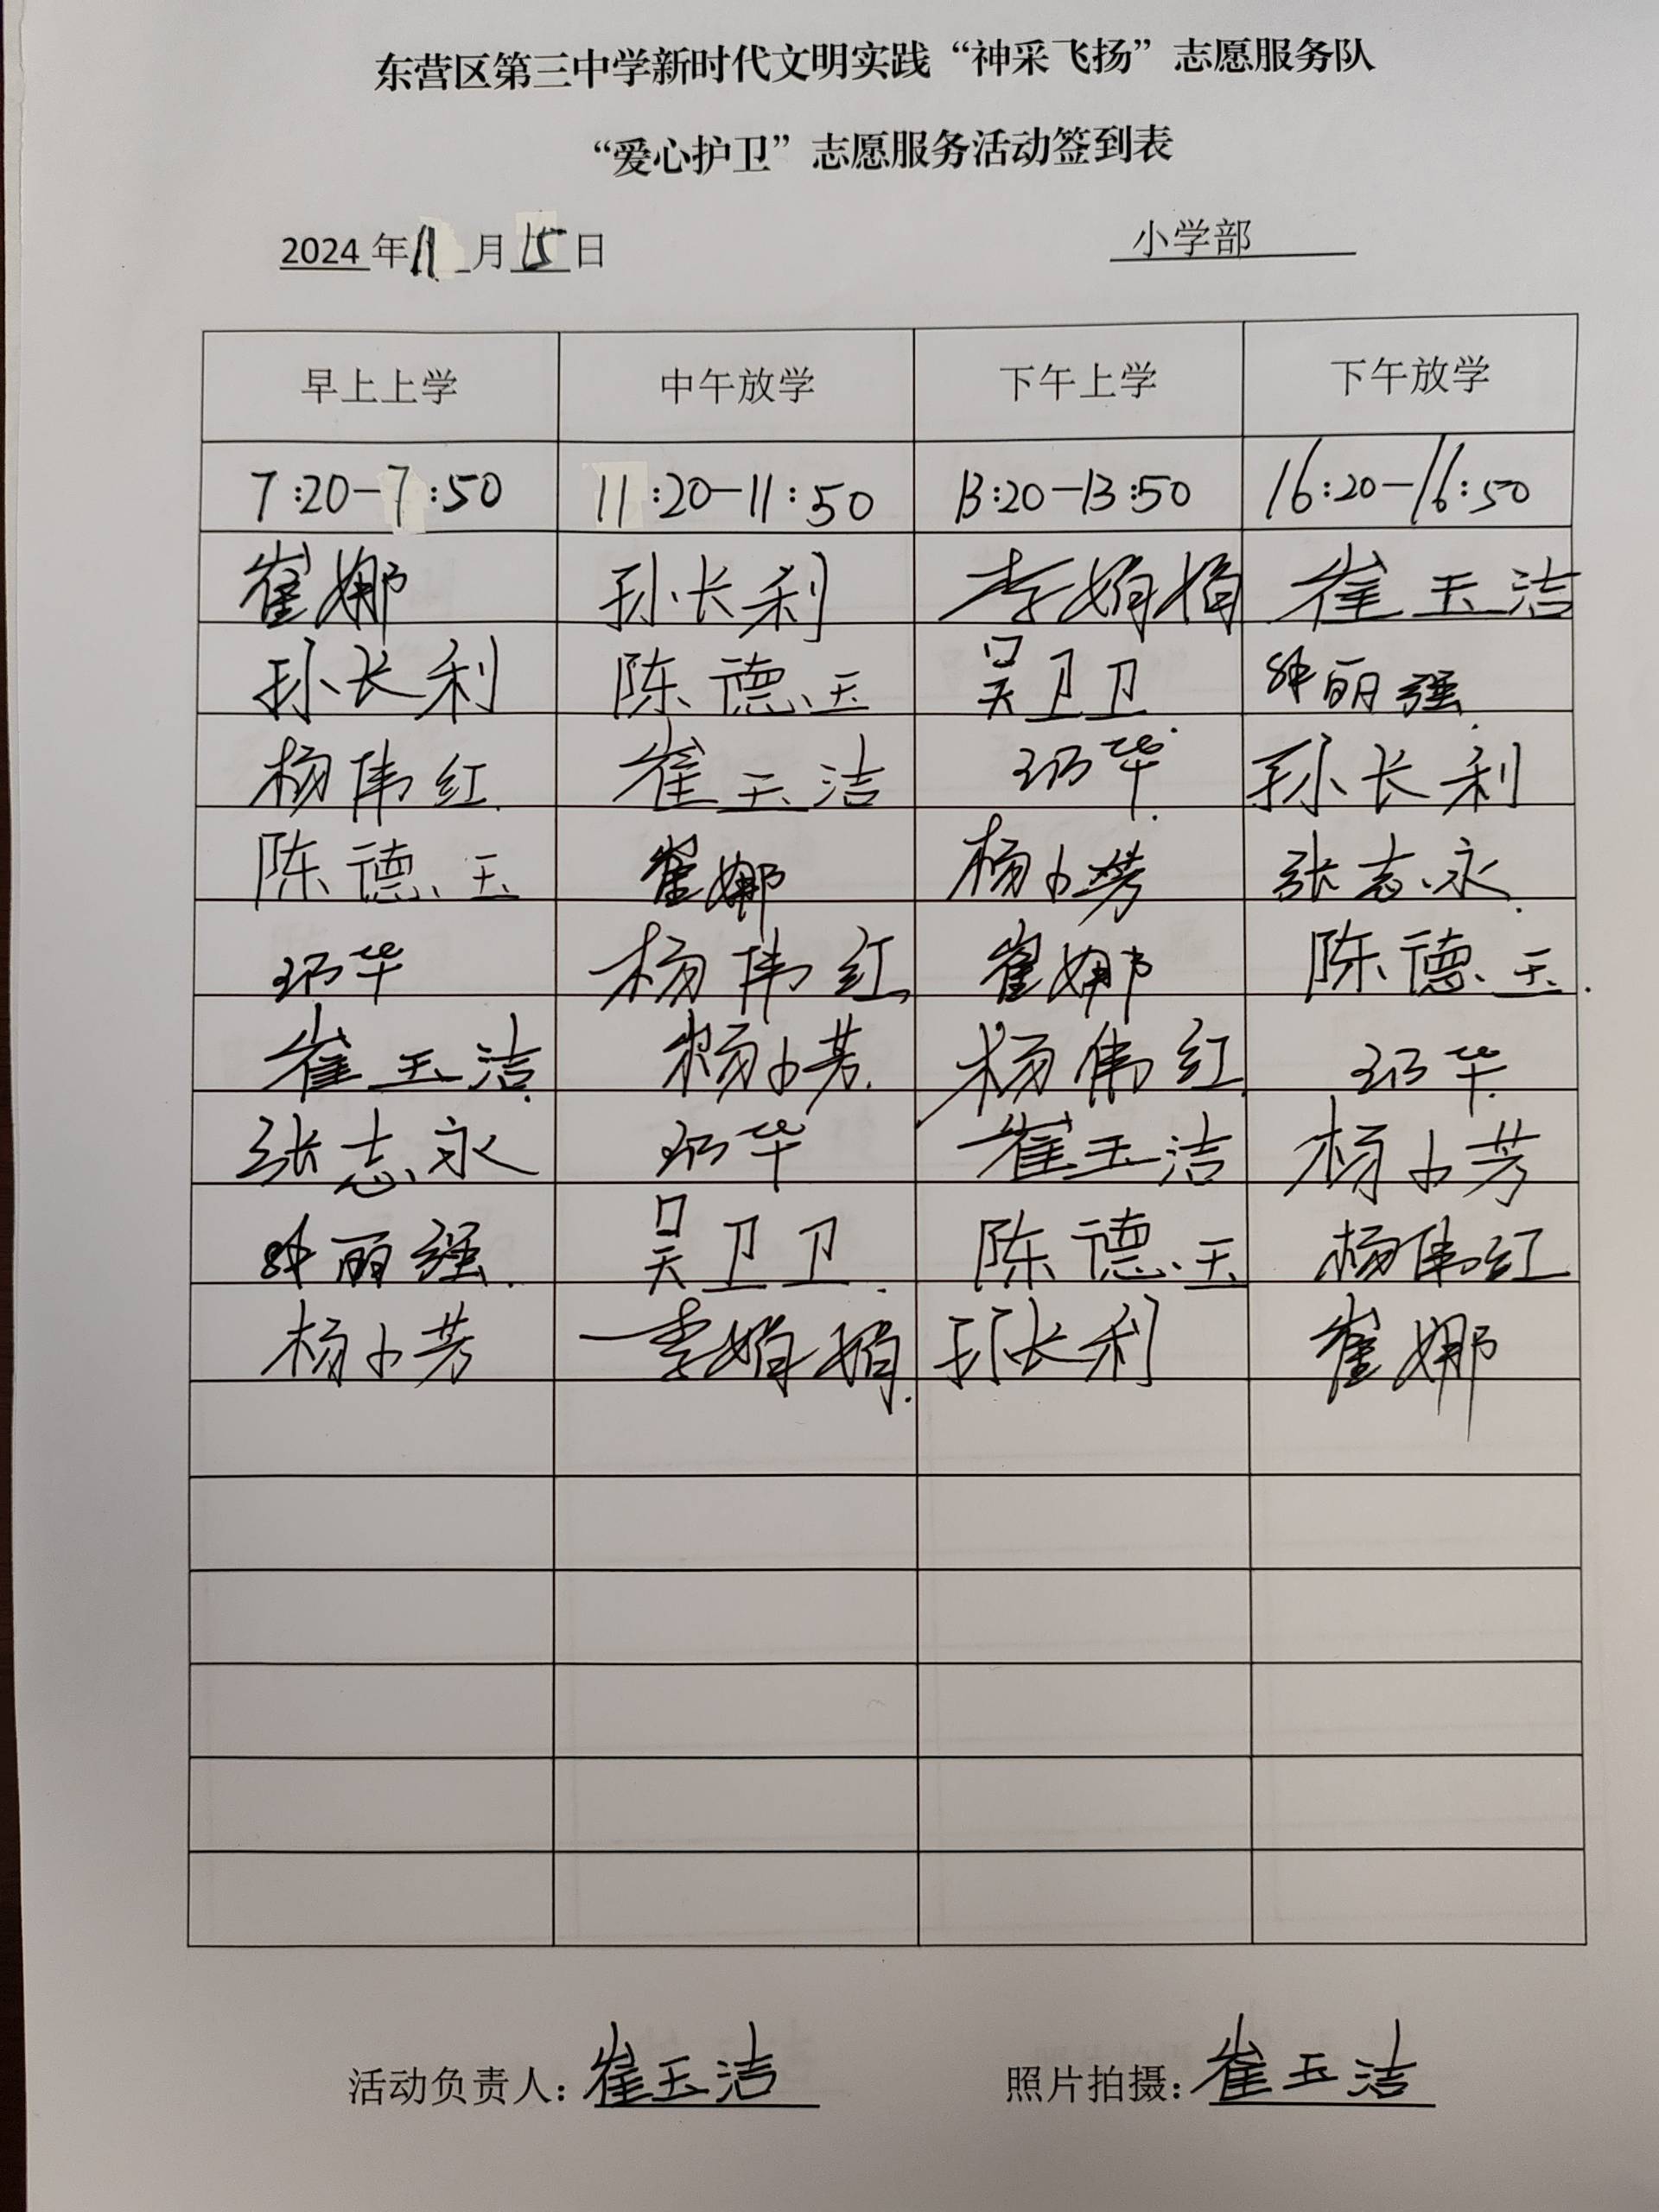 东营区第三中学新时代文明实践“神采飞扬”志愿服务队
“爱心护卫”志愿服务活动签到表
2024年11月15日 小学部
早上上学 中午放学 下午上学 下午放学
7:20-7:50 11:20-11:50 13:20-13:50 16:20-16:50
崔娜 孙长利 李娟娟 崔玉洁
孙长利 陈德玉 吴卫卫 钟丽强
杨伟红 崔玉洁 华 孙长利
陈德玉 崔娜 杨小芳 张志永
华 杨伟红 崔娜 陈德玉
崔玉洁 杨小芳 杨伟红 华
张志永 华 崔玉洁 杨小芳
钟丽强 吴卫卫 陈德玉 杨伟红
杨小芳 李娟娟 孙长利 崔娜
活动负责人：崔玉洁 照片拍摄：崔玉洁